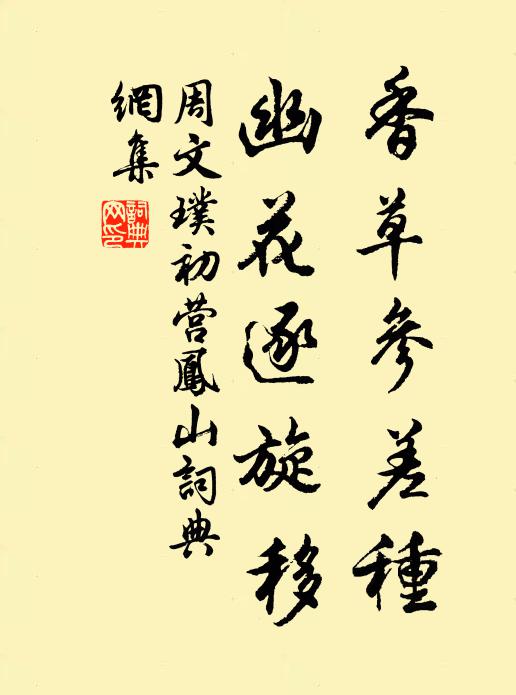 香草參差種
幽花逐旋移
周文璞初营鳳山詞典
網集
詞典
网印